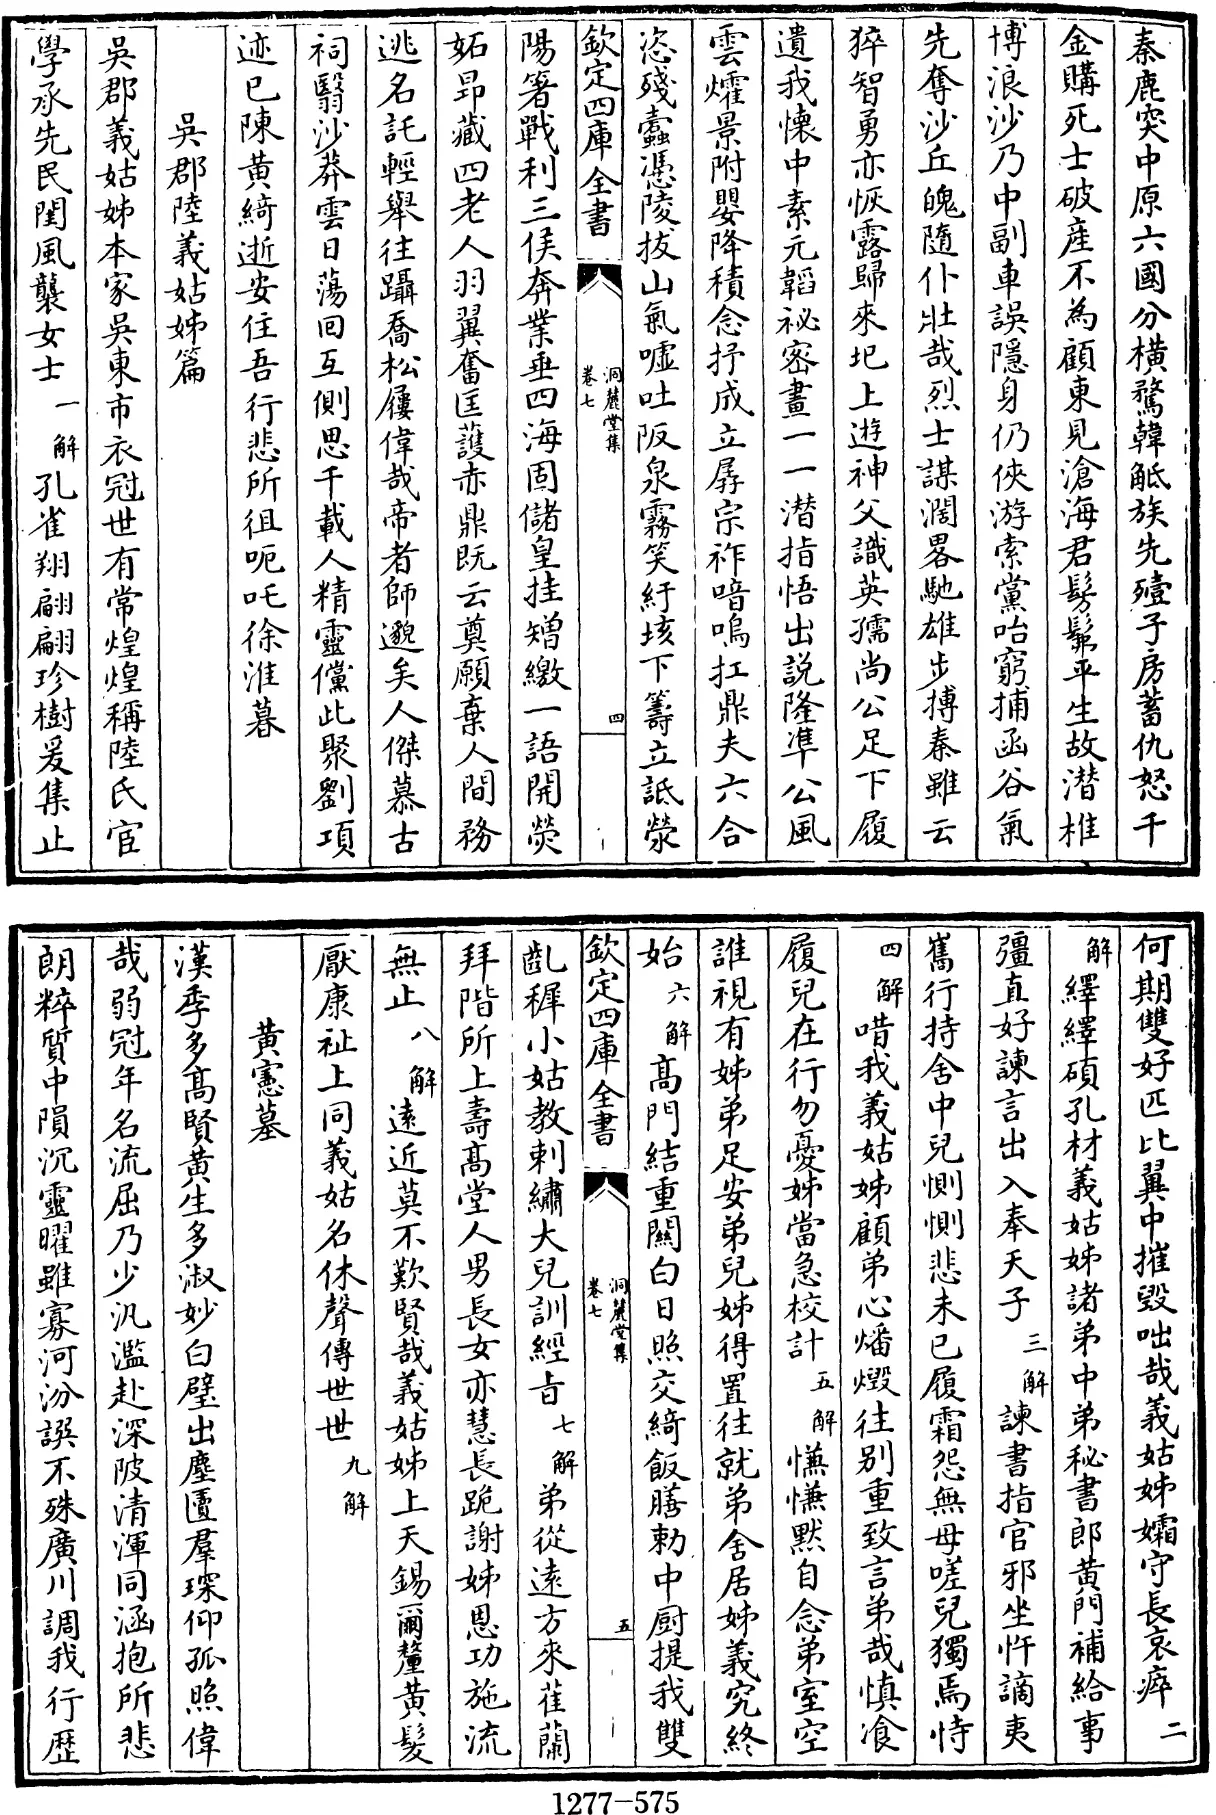 秦鹿突中原六國分橫騖韓觝族先殪子房蓄仇怒千
金購死士破產不為顧東見滄海君髣髴平生故潜椎
博浪沙乃中副車誤隱身仍俠游索黨咍窮捕函谷氣
先奪沙丘魄隨仆壯哉烈士謀濶畧馳雄步搏秦雖云
猝智勇亦恢露歸來圯上遊神父識英孺尚公足下履
遺我懷中素元韜祕密畫一一潜指悟出説隆凖公風
雲爠景附嬰降積念抒成立孱宗祚喑嗚扛鼎夫六合
恣殘蠹憑陵拔山氣噓吐阪泉霧笑紆垓下籌立詆滎
欽定四庫全書
洞麓堂集
卷七
四
陽箸戰利三侯奔業垂四海固儲皇挂矰繳一語開熒
妬昻藏四老人羽翼奮匡護赤鼎既云奠願棄人間務
逃名託輕舉往躡喬松屨偉哉帝者師邈矣人傑慕古
祠翳沙莽雲日蕩回互側思千載人精靈儻此聚劉項
迹已陳黄綺逝安住吾行悲所徂呃吒徐淮暮
吳郡陸義姑姊篇
吳郡義姑姊本家吳東市衣冠世有常煌煌稱陸氏宦
學承先民閨風襲女士 一解 孔雀翔翩翩珍樹爰集止
何期雙好匹比翼中摧毀咄哉義姑姊孀守長哀瘁 二
解 繹繹碩孔材義姑姊諸弟中弟秘書郎黄門補給事
彊直好諫言出入奉天子 三解 諫書指官邪坐忤謫夷
嶲行持舍中兒惻惻悲未已履霜怨無母嗟兒獨焉恃
四解 唶我義姑姊顧弟心燔燬往别重致言弟哉慎飡
履兒在行勿憂姊當急校計 五解 慊慊默自念弟室空
誰視有姊弟足安弟兒姊得置往就弟舍居姊義究終
始 六解 髙門結重關白日照交綺飯膳勅中厨提我雙
欽定四庫全書
洞麓堂集
卷七
五
亂穉小姑教刺繡大兒訓經㫖 七解 弟從遠方來萑蘭
拜階所上壽髙堂人男長女亦慧長跪謝姊恩功施流
無止 八解 遠近莫不歎賢哉義姑姊上天錫爾釐黄髪
厭康祉上同義姑名休聲傳世世 九解
黄憲墓
漢季多髙賢黄生多淑妙白璧出塵匵羣琛仰孤照偉
哉弱冠年名流屈乃少汎濫赴深陂清渾同涵抱所悲
朗粹質中隕沉靈曜雖寡河汾譔不殊廣川調我行歷
1277-575